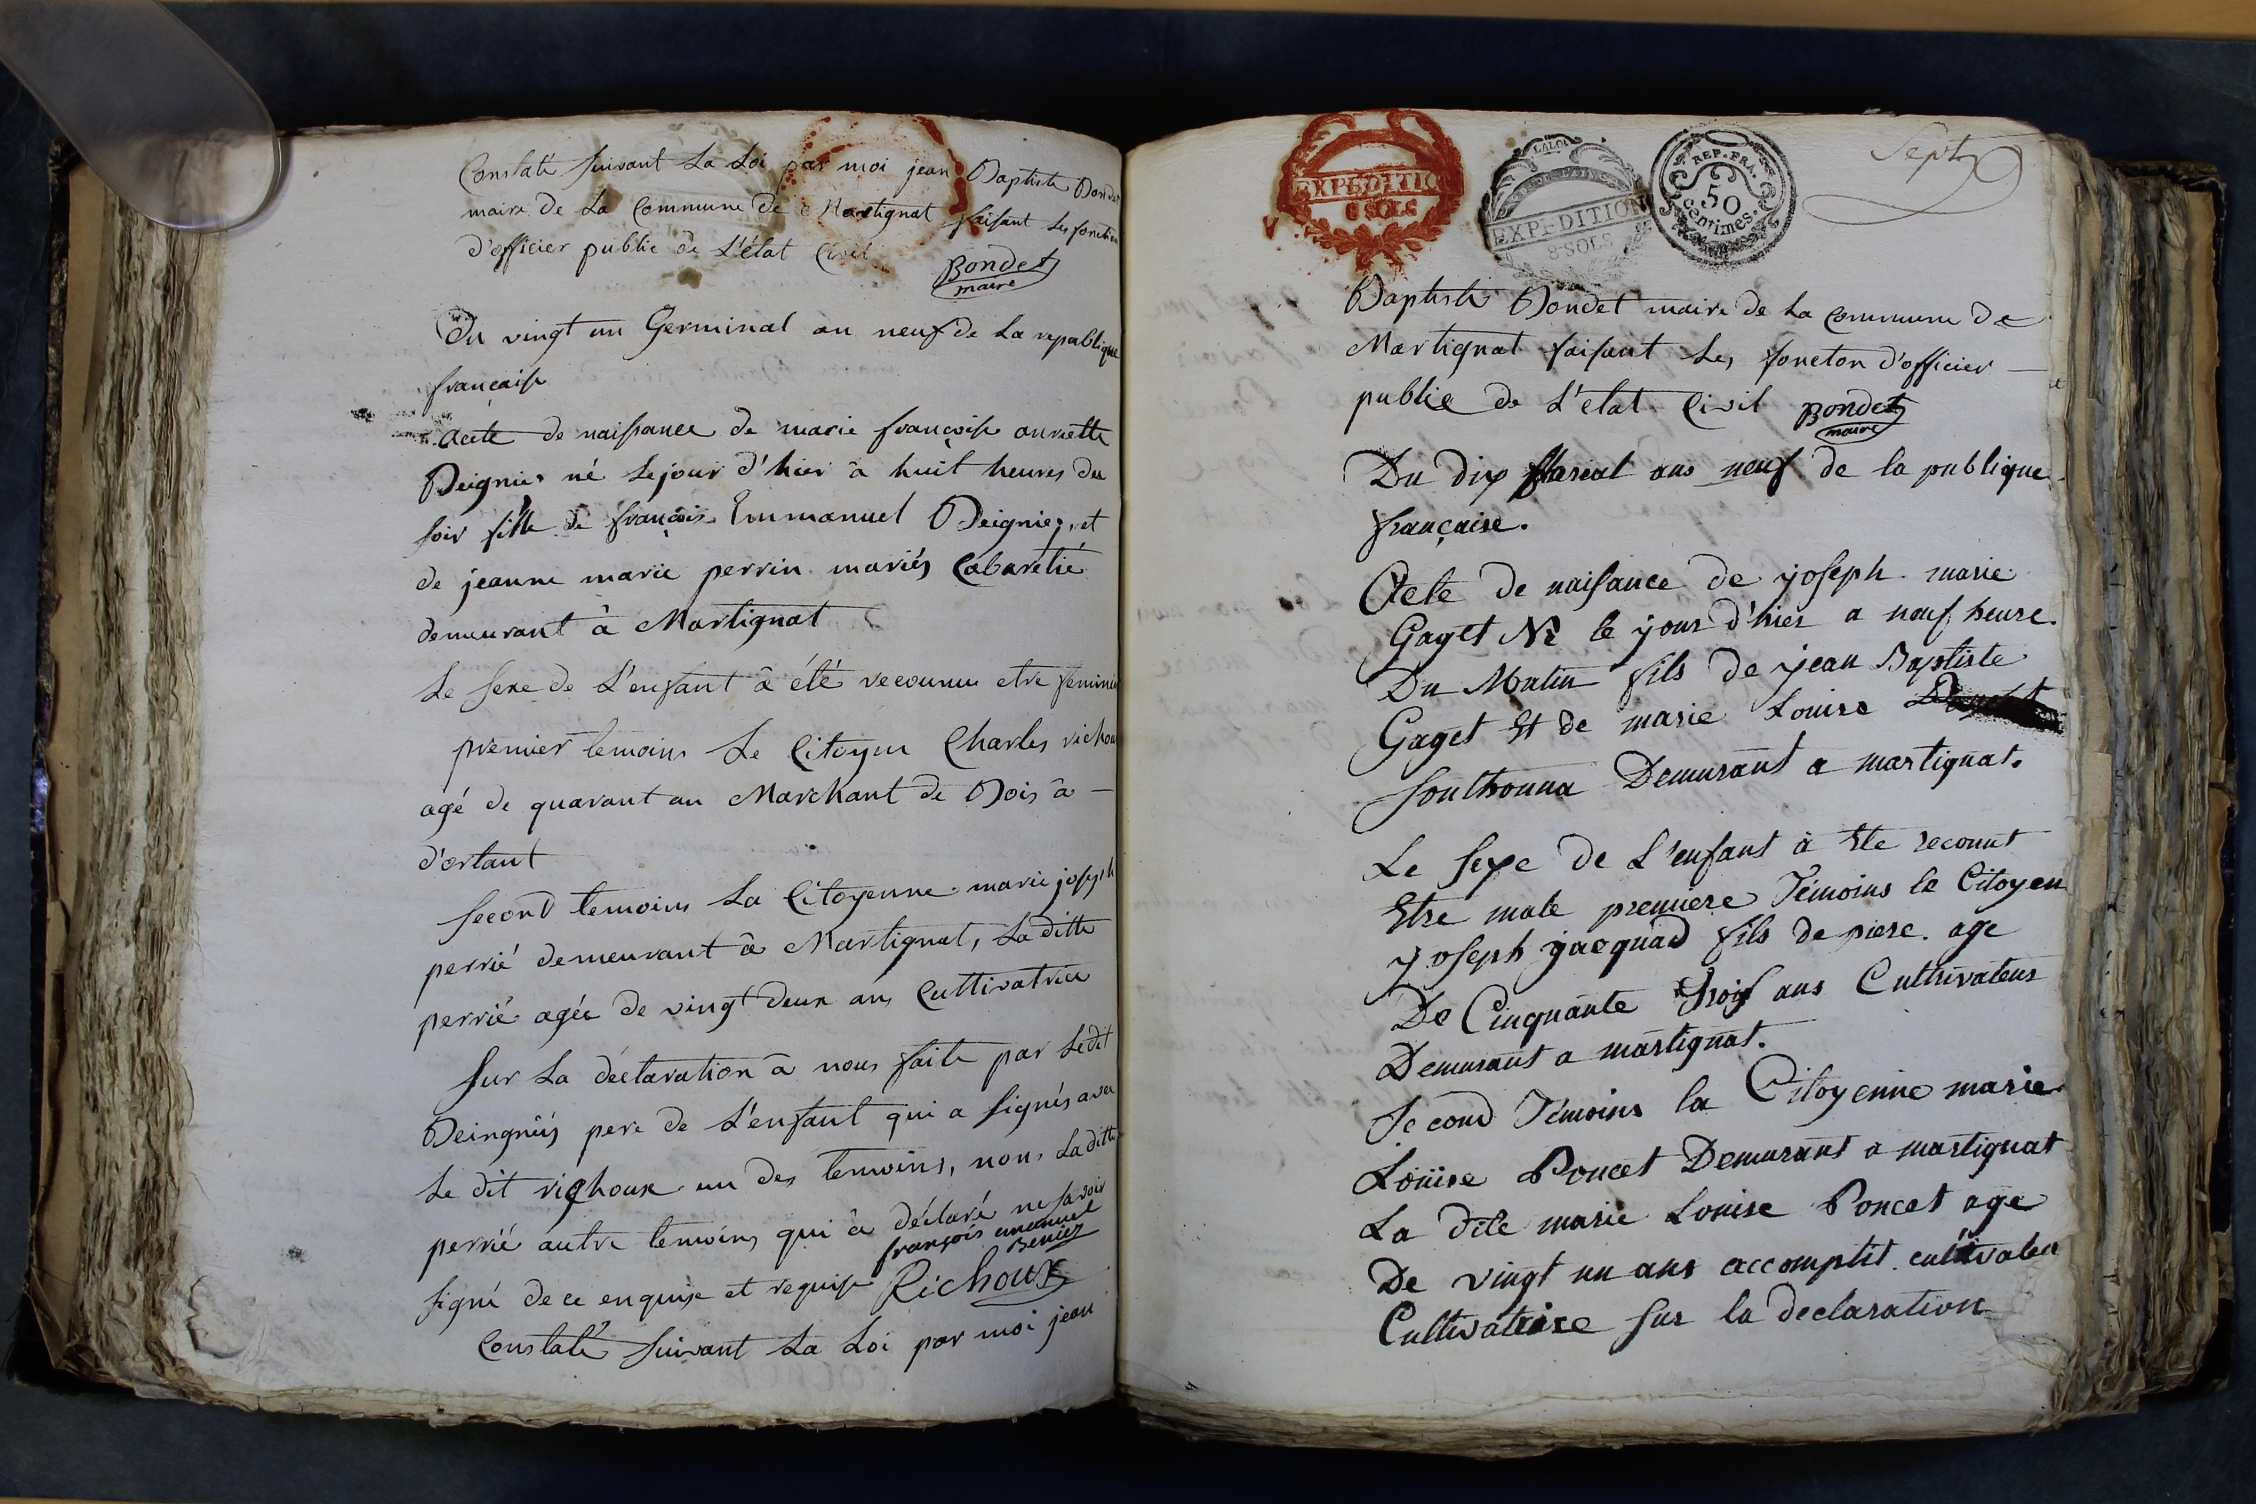 Constaté suivant La Loi par moi jean Baptiste Bondet
maire de La Commune de Martignat faisant Les fonction
d'officier public de L'état Civil
Bondet
maire
Du vingt un Germinal an neuf de La republique
francaise
acte de naissance de marie françoise
Beignier né Le jour d'hier à huit heures du
soir fille de françois Emmanuel Beignier et
de jeanne marie perrin mariés Cabaretié
demeurant à Martignat
Le sexe de L'enfant à été reconnu etre feminin
premier temoins Le Citoyen Charles richoux
agé de quarant an Marchant de Bois à
d'ortant
second temoins La Citoyenne marie joseph
perrié demeurant à Martignat, La ditte
perrié agée de vingt deux ans Cultivatrice
sur La déclaration à nous faite par Ledit
Beingniés pere de L'enfant qui a signés avec
Le dit righoux un des temoins, non La ditte
perrié autre temoins qui à déclaré ne savoir
françois emanuel
Beniez
signé de ce enquise et requise Richoux
Constaté suivant La Loi par moi jean
EXPEDITION
8 SOLS
LA LOI
EXPEDITION
8 SOLS
REP. FRA.
50
centimes.
Sept
Baptiste Bondet maire de La commune de
Martignat faisant Les foncton d'officier
public de L'etat Civil Bondet
maire
Du dix flareal ans neuf de la publique
française.
Acte de naisance de yoseph marie
Gaget Né le your d'hier a neuf heure.
Du Matin fils de yean Baptiste
Gaget Et de marie Louise
Southonna Demurant a martignat.
Le sexe de L'enfant à Ete reconnt
Etre male premiere Témoins le Citoyen
yoseph yacquad fils de piere age
De Cinquante trois ans Cultivateur
Demurant a martignat.
Second Témoins la Citoyenne marie
Louise Poncet Demurant a martignat
La dite marie Louise Poncet age
De vingt un ans accomplit cultivateu
Cultivatrice sur la declaration